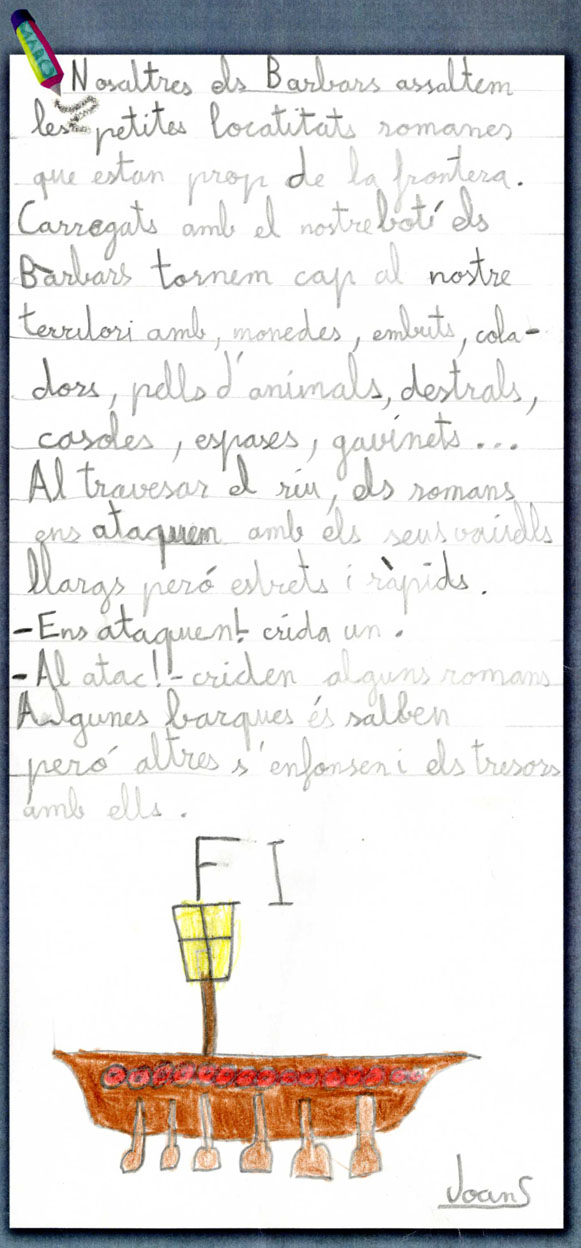 MARC
Nosaltres els Barbars assaltem
les petites locatitats romanes
que estan prop de la frontera.
Carregats amb el nostre botí els
Barbars tornem cap al nostre
territori amb, monedes, embuts, cola-
dors, pells d'animals, destrals,
casoles, espases, gavinets...
Al travesar el riu, els romans
ens ataquem amb els seus vaixells
llargs peró estrets i ràpids.
-Ens ataquen!- crida un.
-Al atac!-criden alguns romans
Algunes barques és salben
peró altres s'enfonsen i els tresors
amb ells.
FI
JoanS